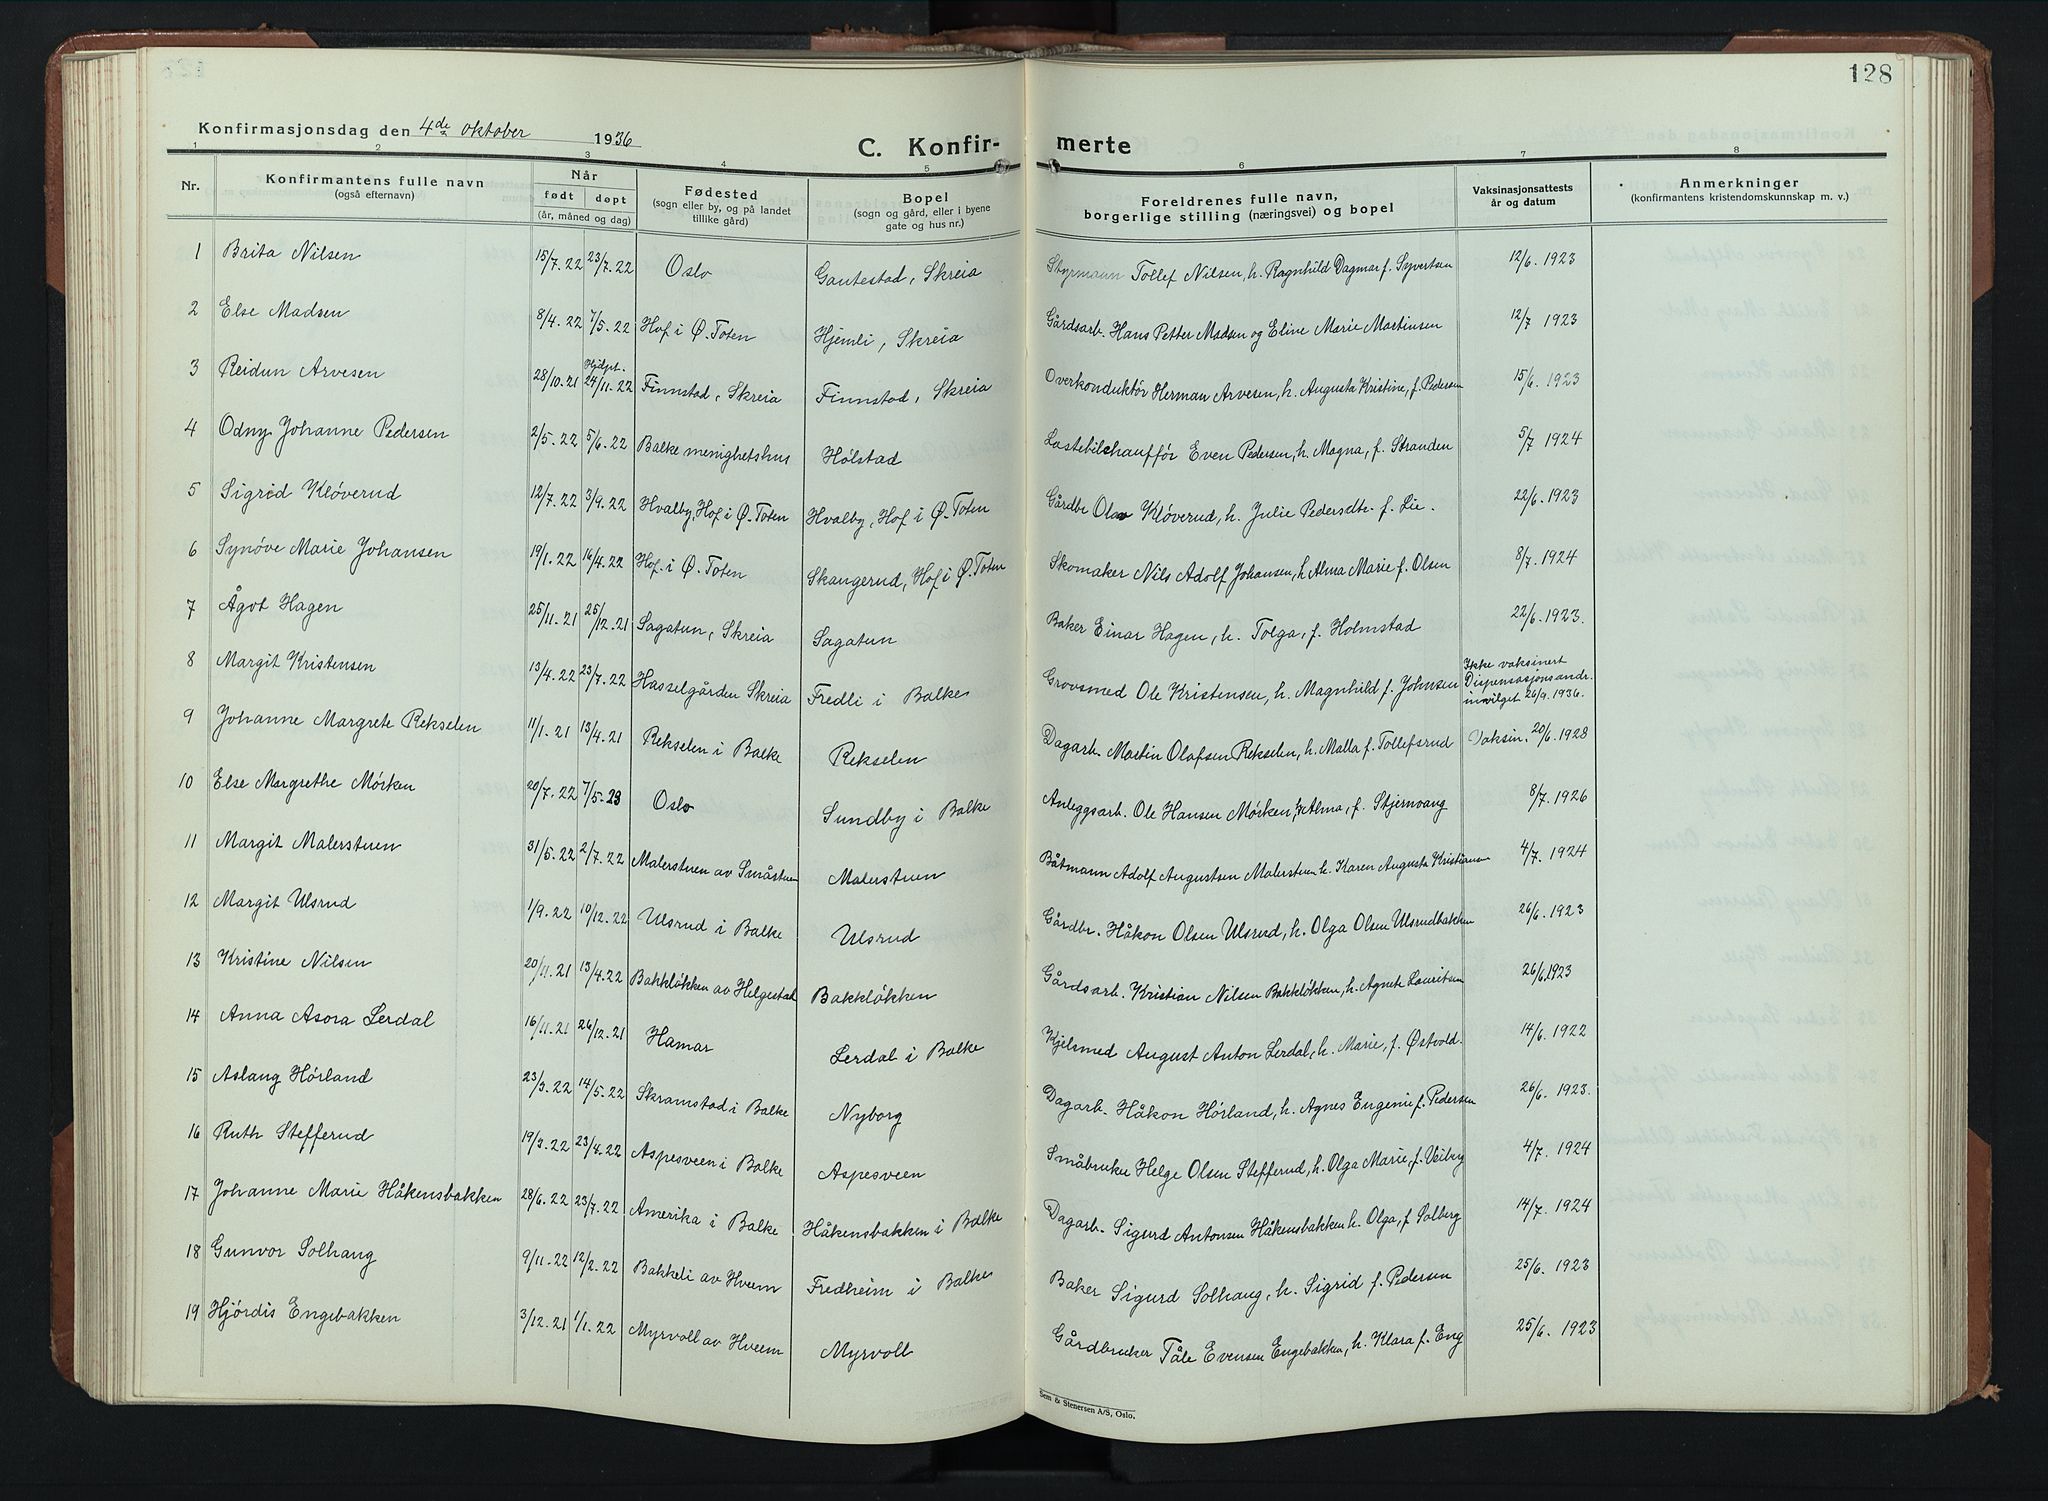 128
Konfirmasjonsdag den 4de oktober 1936
C. Konfir- merte
1 2 3 4 5 6 7 8
Nr. Konfirmantens fulle navn (også efternavn) Når født døpt (år, måned og dag) Fødested (sogn eller by, og på landet tillike gård) Bopel (sogn og gård, eller i byene gate og hus nr.) Foreldrenes fulle navn, borgerlige stilling (næringsvei) og bopel Vaksinasjonsattests år og datum Anmerkninger (konfirmantens kristendomskunnskap m. v.)
1 Brita Nilsen 15/7. 22 23/7. 22 Oslo Gautestad, Skreia Styrmann Tollef Nilsen, h. Ragnhild Dagmar f. Syvertsen 12/6. 1923
2 Else Madsen 8/4. 22 7/5. 22 Hof i Ø. Toten Hjemli, Skreia Gårdsarb. Hans Petter Madsen og Eline Marie Martinsen 12/7 1923
3 Reidun Arvesen 28/10. 21 Hjdpt. 24/11. 22 Finnstad, Skreia Finnstad, Skreia Overkonduktör Herman Arvesen, h. Augusta Kristine, f. Pedersen 15/6. 1923
4 Odny Johanne Pedersen 2/5. 22 5/6. 22 Balke menighetshus Hølstad Lastebilchaufför Even Pedersen, h. Magna, f. Stranden 5/7 1924
5 Sigrid Kløverud 12/7. 22 3/9. 22 Hvalby, Hof i Ø. Toten Hvalby, Hof i Ø. Toten Gårdbr Olav Kløverud, h. Julie Pedersdtr. f. Lie. 22/6. 1923
6 Synøve Marie Johansen 19/1. 22 16/4. 22 Hof. i Ø. Toten Skangerud, Hof i Ø. Toten Skomaker Nils Adolf Johansen, h Alma Marie f. Olsen 8/7. 1924
7 Ågot Hagen 25/11. 21 25/12. 21 Sagatun, Skreia Sagatun Baker Einar Hagen, h. Tolga, f. Holmstad 22/6. 1923.
8 Margit Kristensen 13/4. 22 23/7. 22 Hasselgården Skreia Fredli i Balke Grovsmed Ole Kristensen, h. Magnhild f. Johnsen Ikke vaksinert Dispensasjonsandr. innvilget 26/9. 1936.
9 Johanne Margrete Rekselen 11/1. 21 13/4. 21 Rekselen i Balke Rekselen Dagarb. Martin Olafsen Rekselen, h. Malla f. Tollefsrud Vaksin. 20/6. 1928
10 Else Margrethe Mørken 20/7. 22 7/5. 23 Oslo Sundby i Balke Anleggsarb. Ole Hansen Mørken, h. Alma, f. Stjernvang 8/7. 1926
11 Margit Malerstuen 31/5. 22 2/7. 22 Malerstuen av Småstuen Malerstuen Båtmann Adolf Augustsen Malerstuen h. Karen Augusta Kristiansen 4/7. 1924
12 Margit Ulsrud 1/9. 22 10/12. 22 Ulsrud i Balke Ulsrud Gårdbr. Håkon Olsen Ulsrud, h. Olga Olsen Ulsrudbakken 26/6. 1923
13 Kristine Nilsen 20/11. 21 13/4. 22 Bakkløkken av Helgestad Bakkløkken Gårdsarb. Kristian Nilsen Bakkløkken, h. Agnete Lauritsen 26/6.1923
14 Anna Asora Lerdal 16/11. 21 26/12. 21 Hamar Lerdal i Balke Kjelsmed August Anton Lerdal, h. Marie, f. Østvold. 14/6. 1922
15 Aslaug Hørland 23/3. 22 14/5. 22 Skramstad i Balke Nyborg Dagarb. Håkon Hørland, h. Agnes Engenie f. Pedersen 26/6. 1923.
16 Ruth Stefferud 19/3. 22 23/4. 22 Aspesveen i Balke Aspesveen Småbruker Helge Olsen Stefferud, h. Olga Marie, f. Veiby 4/7. 1924
17 Johanne Marie Håkensbakken 28/6. 22 23/7. 22 Amerika i Balke Håkensbakken i Balke Dagarb. Sigurd Antonsen Håkensbakken h. Olga, f. Solberg 14/7. 1924
18 Gunvor Solhaug 9/11. 22 12/2. 22 Bakkeli av Hveem Fredheim i Balke Baker Sigurd Solhaug, h. Sigrid f. Pedersen 25/6. 1923
19 Hjørdis Engebakken 3/12. 21 1/1. 22 Myrvoll av Hveem Myrvoll Gårdbruker Tåle Evensen Engebakken, h. Klara f. Eng 25/6. 1923
Sem & Stenersen A/S, Oslo.